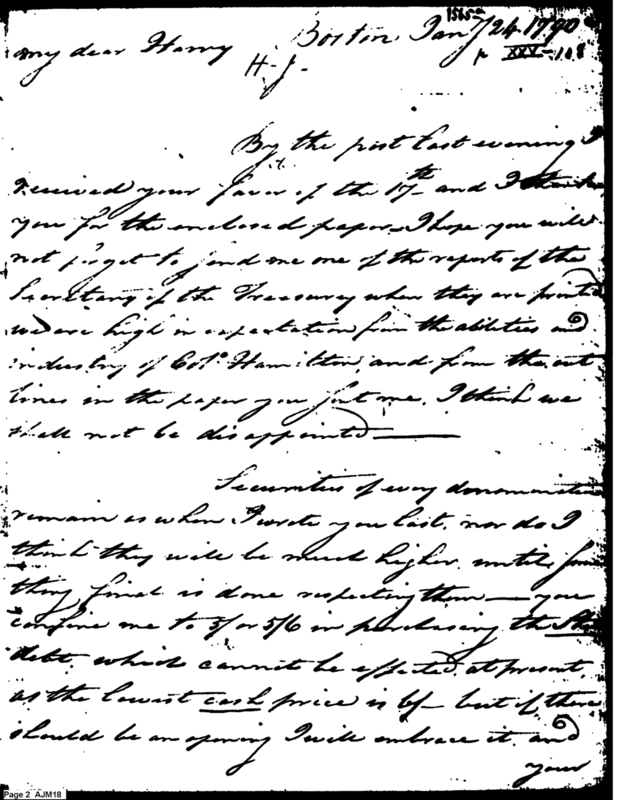 1565a
Boston Jany 24. 1790
XXV-118
My dear Harry
H-J-
By the post last evening I
received your favor of the 17th and I thank
you for the enclosed paper, I hope you will
not forget to send me one of the reports of the
Secretary of the Treasury when they are printed
we are high in expectation from the abilities and
industry of Colo. Hamilton, and from the out
lines in the paper you sent me, I think we
shall not be disappointed —
Securities of every denomination
remain as when I wrote you last, nor do I
think they will be much higher until some
thing final is done respecting them — you
confine me to 5/ or 5/6 in purchasing the State
debt, which cannot be effected at present,
as the lowest cash price is 6/- but if there
should be an opening I will embrace it, and
your
Page 2 AJM18